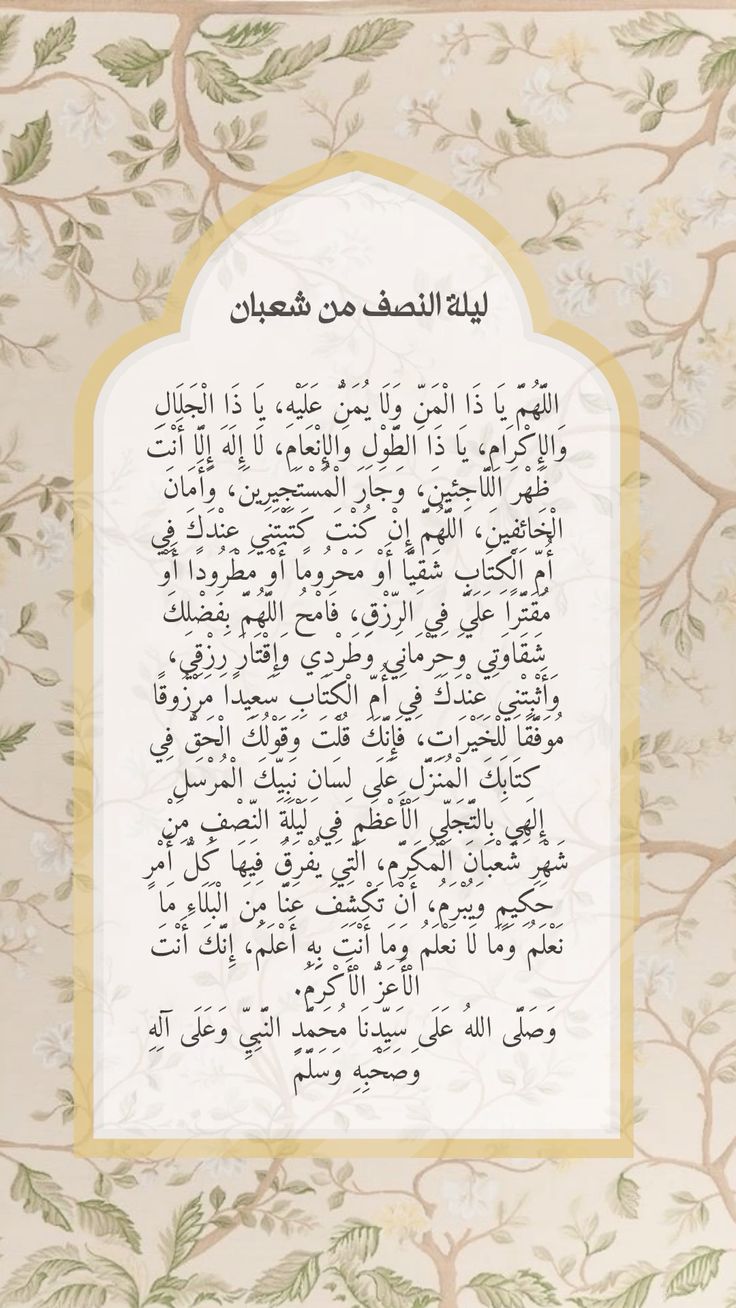 ليلة النصف من شعبان
اللَّهُمَّ يَا ذَا الْمَنِّ وَلَا يُمَنُّ عَلَيْهِ، يَا ذَا الْجَلَالِ
وَالإِكْرَامِ، يَا ذَا الطَّوْلِ وَالإِنْعَامِ، لَا إِلَهَ إِلَّا أَنْتَ
ظَهْرَ اللَّاجِئِينَ، وَجَارَ الْمُسْتَجِيرِينَ، وَأَمَانَ
الْخَائِفِينَ، اللَّهُمَّ إِنْ كُنْتَ كَتَبْتَنِي عِنْدَكَ فِي
أُمِّ الْكِتَابِ شَقِيًّا أَوْ مَحْرُومًا أَوْ مَطْرُودًا أَوْ
مُقَتَّرًا عَلَيَّ فِي الرِّزْقِ، فَامْحُ اللَّهُمَّ بِفَضْلِكَ
شَقَاوَتِي وَحِرْمَانِي وَطَرْدِي وَإِقْتَارَ رِزْقِي،
وَأَثْبِتْنِي عِنْدَكَ فِي أُمِّ الْكِتَابِ سَعِيدًا مَرْزُوقًا
مُوَفَّقًا لِلْخَيْرَاتِ، فَإِنَّكَ قُلْتَ وَقَوْلُكَ الْحَقُّ فِي
كِتَابِكَ الْمُنَزَّلِ عَلَى لِسَانِ نَبِيِّكَ الْمُرْسَلِ
إِلهِي بِالتَّجَلِّي الْأَعْظَمِ فِي لَيْلَةِ النِّصْفِ مِنْ
شَهْرِ شَعْبَانَ الْمُكَرَّمِ، الَّتِي يُفْرَقُ فِيهَا كُلُّ أَمْرٍ
حَكِيمٍ وَيُبْرَمُ، أَنْ تَكْشِفَ عَنَّا مِنَ الْبَلَاءِ مَا
نَعْلَمُ وَمَا لَا نَعْلَمُ وَمَا أَنْتَ بِهِ أَعْلَمُ، إِنَّكَ أَنْتَ
الْأَعَزُّ الْأَكْرَمُ.
وَصَلَّى اللهُ عَلَى سَيِّدِنَا مُحَمَّدٍ النَّبِيِّ وَعَلَى آلِهِ
وَصَحْبِهِ وَسَلَّمَ